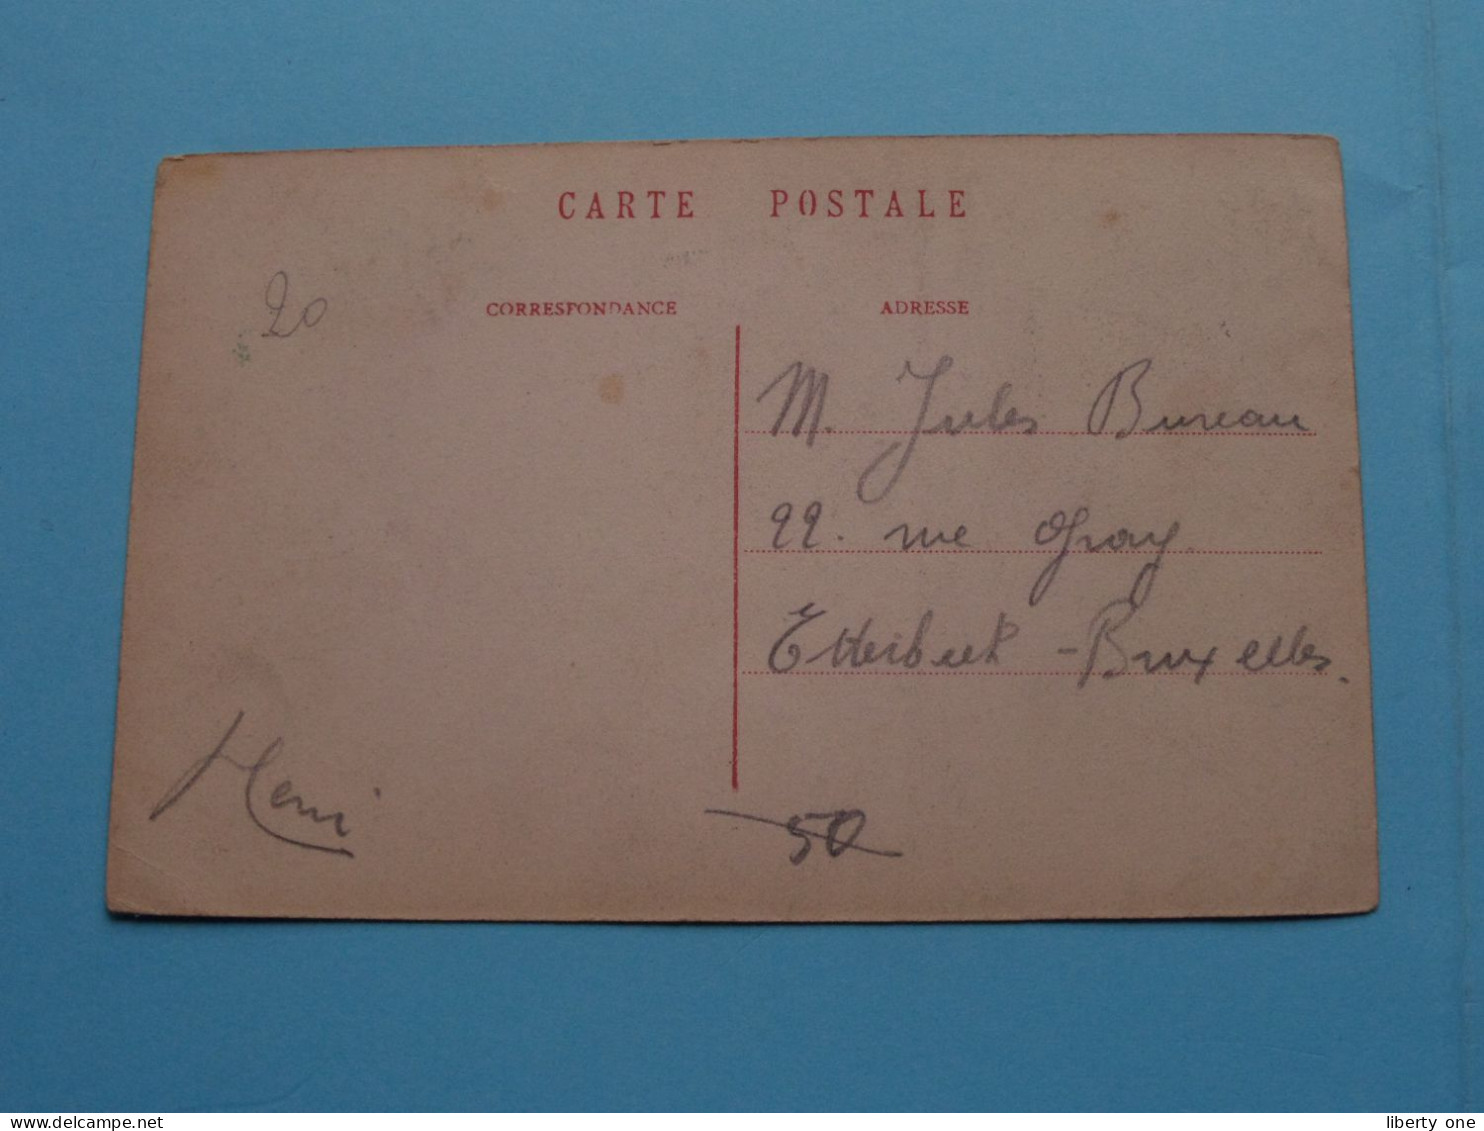 CARTE POSTALE
CORRESPONDANCE
ADRESSE
20
M. Jules Bureau
22. rue Gray
Etterbeek - Bruxelles.
Henri
50
liberty one
liberty one